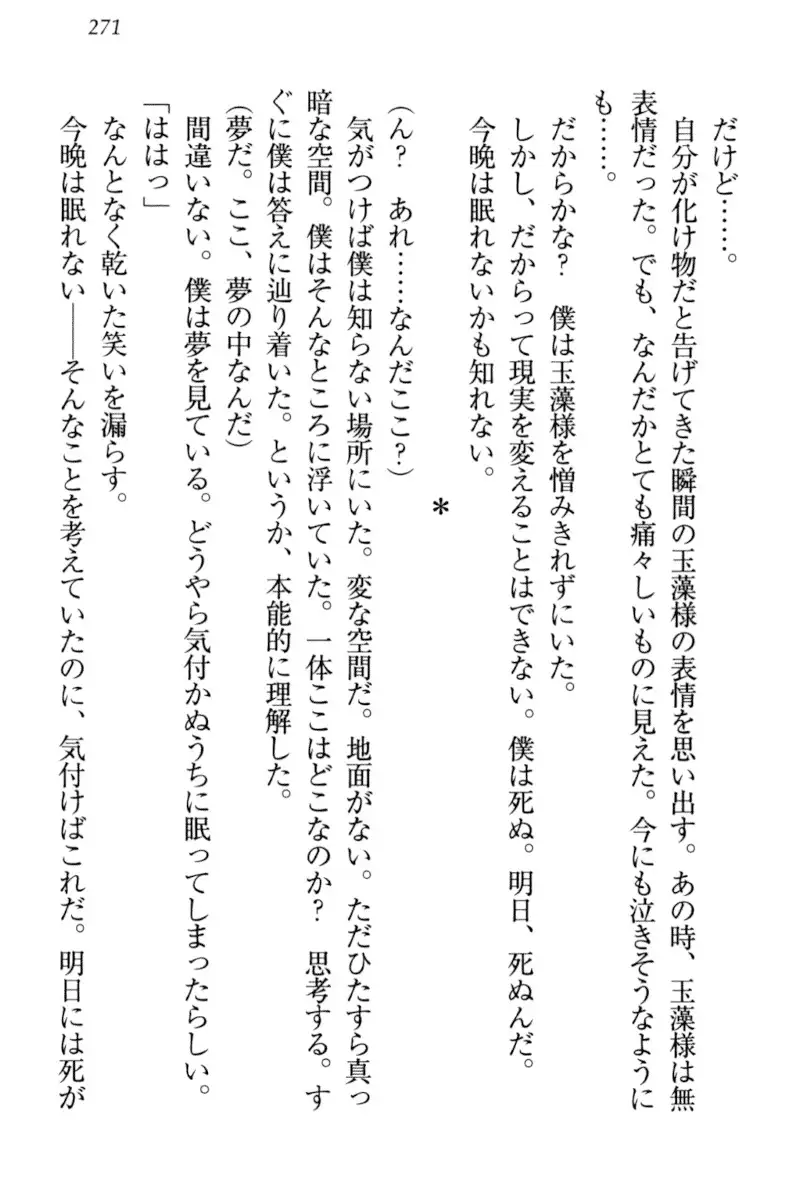 271
だけど……。
自分が化け物だと告げてきた瞬間の玉藻様の表情を思い出す。あの時、玉藻様は無
表情だった。でも、なんだかとても痛々しいものに見えた。今にも泣きそうなように
も……。
だからかな？　僕は玉藻様を憎みきれずにいた。
しかし、だからって現実を変えることはできない。僕は死ぬ。明日、死ぬんだ。
今晩は眠れないかも知れない。
＊
（ん？　あれ……なんだここ？）
気がつけば僕は知らない場所にいた。変な空間だ。地面がない。ただひたすら真っ
暗な空間。僕はそんなところに浮いていた。一体ここはどこなのか？　思考する。す
ぐに僕は答えに辿り着いた。というか、本能的に理解した。
（夢だ。ここ、夢の中なんだ）
間違いない。僕は夢を見ている。どうやら気付かぬうちに眠ってしまったらしい。
「ははっ」
なんとなく乾いた笑いを漏らす。
今晩は眠れない――そんなことを考えていたのに、気付けばこれだ。明日には死が